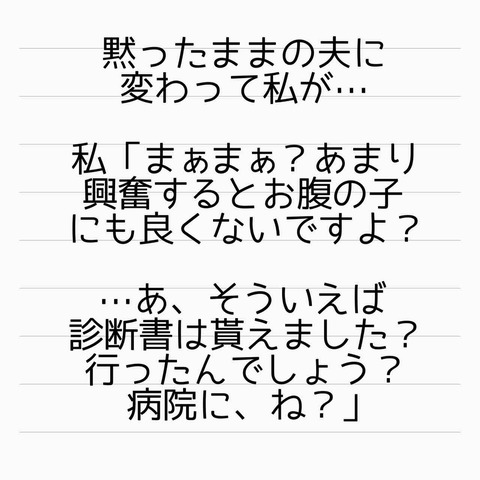 黙ったままの夫に
変わって私が…
私「まぁまぁ？あまり
興奮するとお腹の子
にも良くないですよ？
…あ、そういえば
診断書は貰えました？
行ったんでしょう？
病院に、ね？」